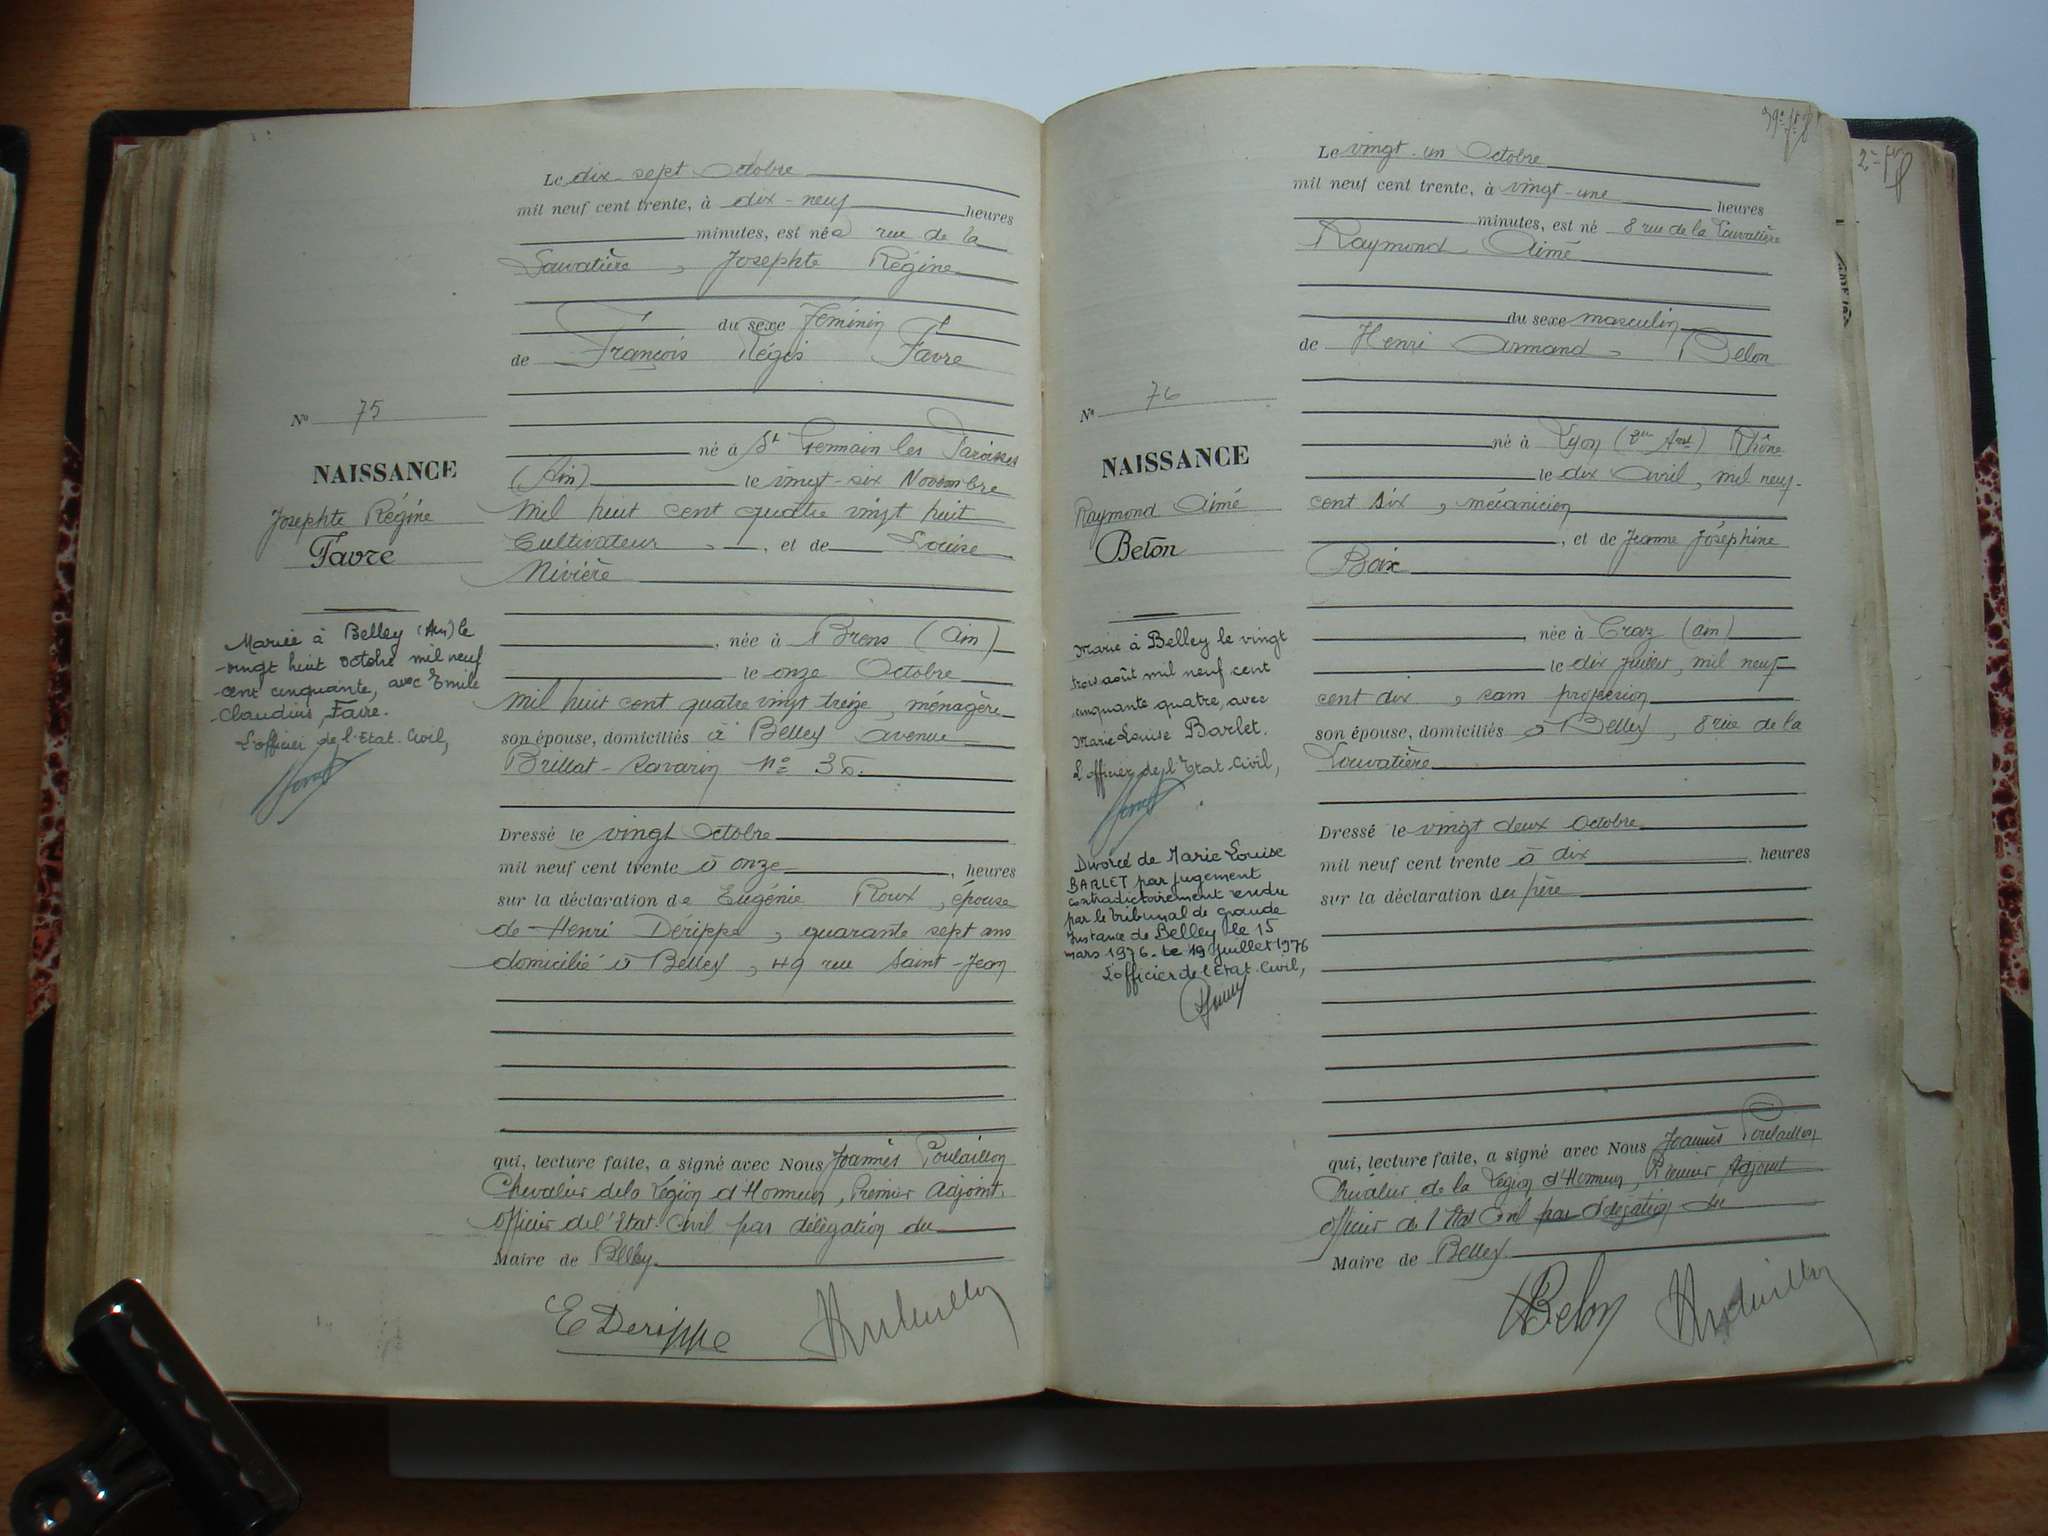 Le dix-sept Octobre
mil neuf cent trente, à dix-neuf heures
minutes, est née rue de la
Louvatière, Josephte Régine
du sexe féminin
de François Régis Favre
né à St Germain les Paroisses
(Ain) le vingt-six Novembre
mil huit cent quatre vingt huit
Cultivateur, et de Louise
Nivière
née à Brens (Ain)
le onze Octobre
mil huit cent quatre vingt treize, ménagère
son épouse, domiciliés à Belley avenue
Brillat-Savarin no
Dressé le vingt Octobre
mil neuf cent trente à onze, heures
sur la déclaration de Eugénie Roux, épouse
de Henri Dérippe, quarante sept ans
domicilié à Belley, 49 rue Saint-Jean
qui, lecture faite, a signé avec Nous Joannès Poulaillon
Chevalier de la Légion d'Honneur, Premier Adjoint,
Officier de l'Etat-Civil par délégation du
Maire de Belley.
E Derippe
No 75
NAISSANCE
Josephte Régine
Favre
Mariée à Belley (Ain) le
vingt huit octobre mil neuf
cent cinquante, avec Emile
Claudius, Favre.
L'officier de l'Etat-Civil,
39e
Le vingt-un Octobre
mil neuf cent trente, à vingt-une heures
minutes, est né 8 rue de la Louvatière
Raymond Aimé
du sexe masculin
de Henri Armand, Belon
né à Lyon Rhône
le dix Avril, mil neuf-
cent six, mécanicien
, et de Jeanne Joséphine
Boix
née à Craz (Ain)
le dix Juillet, mil neuf
cent dix, sans profession
son épouse, domiciliés à Belley, 8 rue de la
Louvatière
Dressé le vingt deux Octobre
mil neuf cent trente à dix, heures
sur la déclaration du père
qui, lecture faite, a signé avec Nous Joannès Poulaillon
Chevalier de la Légion d'Honneur, Premier Adjoint
Officier de l'Etat Civil par délégation du
Maire de Belley
Belon
No 76
NAISSANCE
Raymond Aimé
Belon
Marié à Belley le vingt
trois août mil neuf cent
cinquante quatre, avec
Marie Louise Barlet.
L'officier de l'Etat-Civil,
Divorcé de Marie Louise
BARLET par jugement
contradictoirement rendu
par le tribunal de grande
Instance de Belley le 15
mars 1976. Le 19 Juillet 1976
L'officier de l'Etat-Civil,
2e